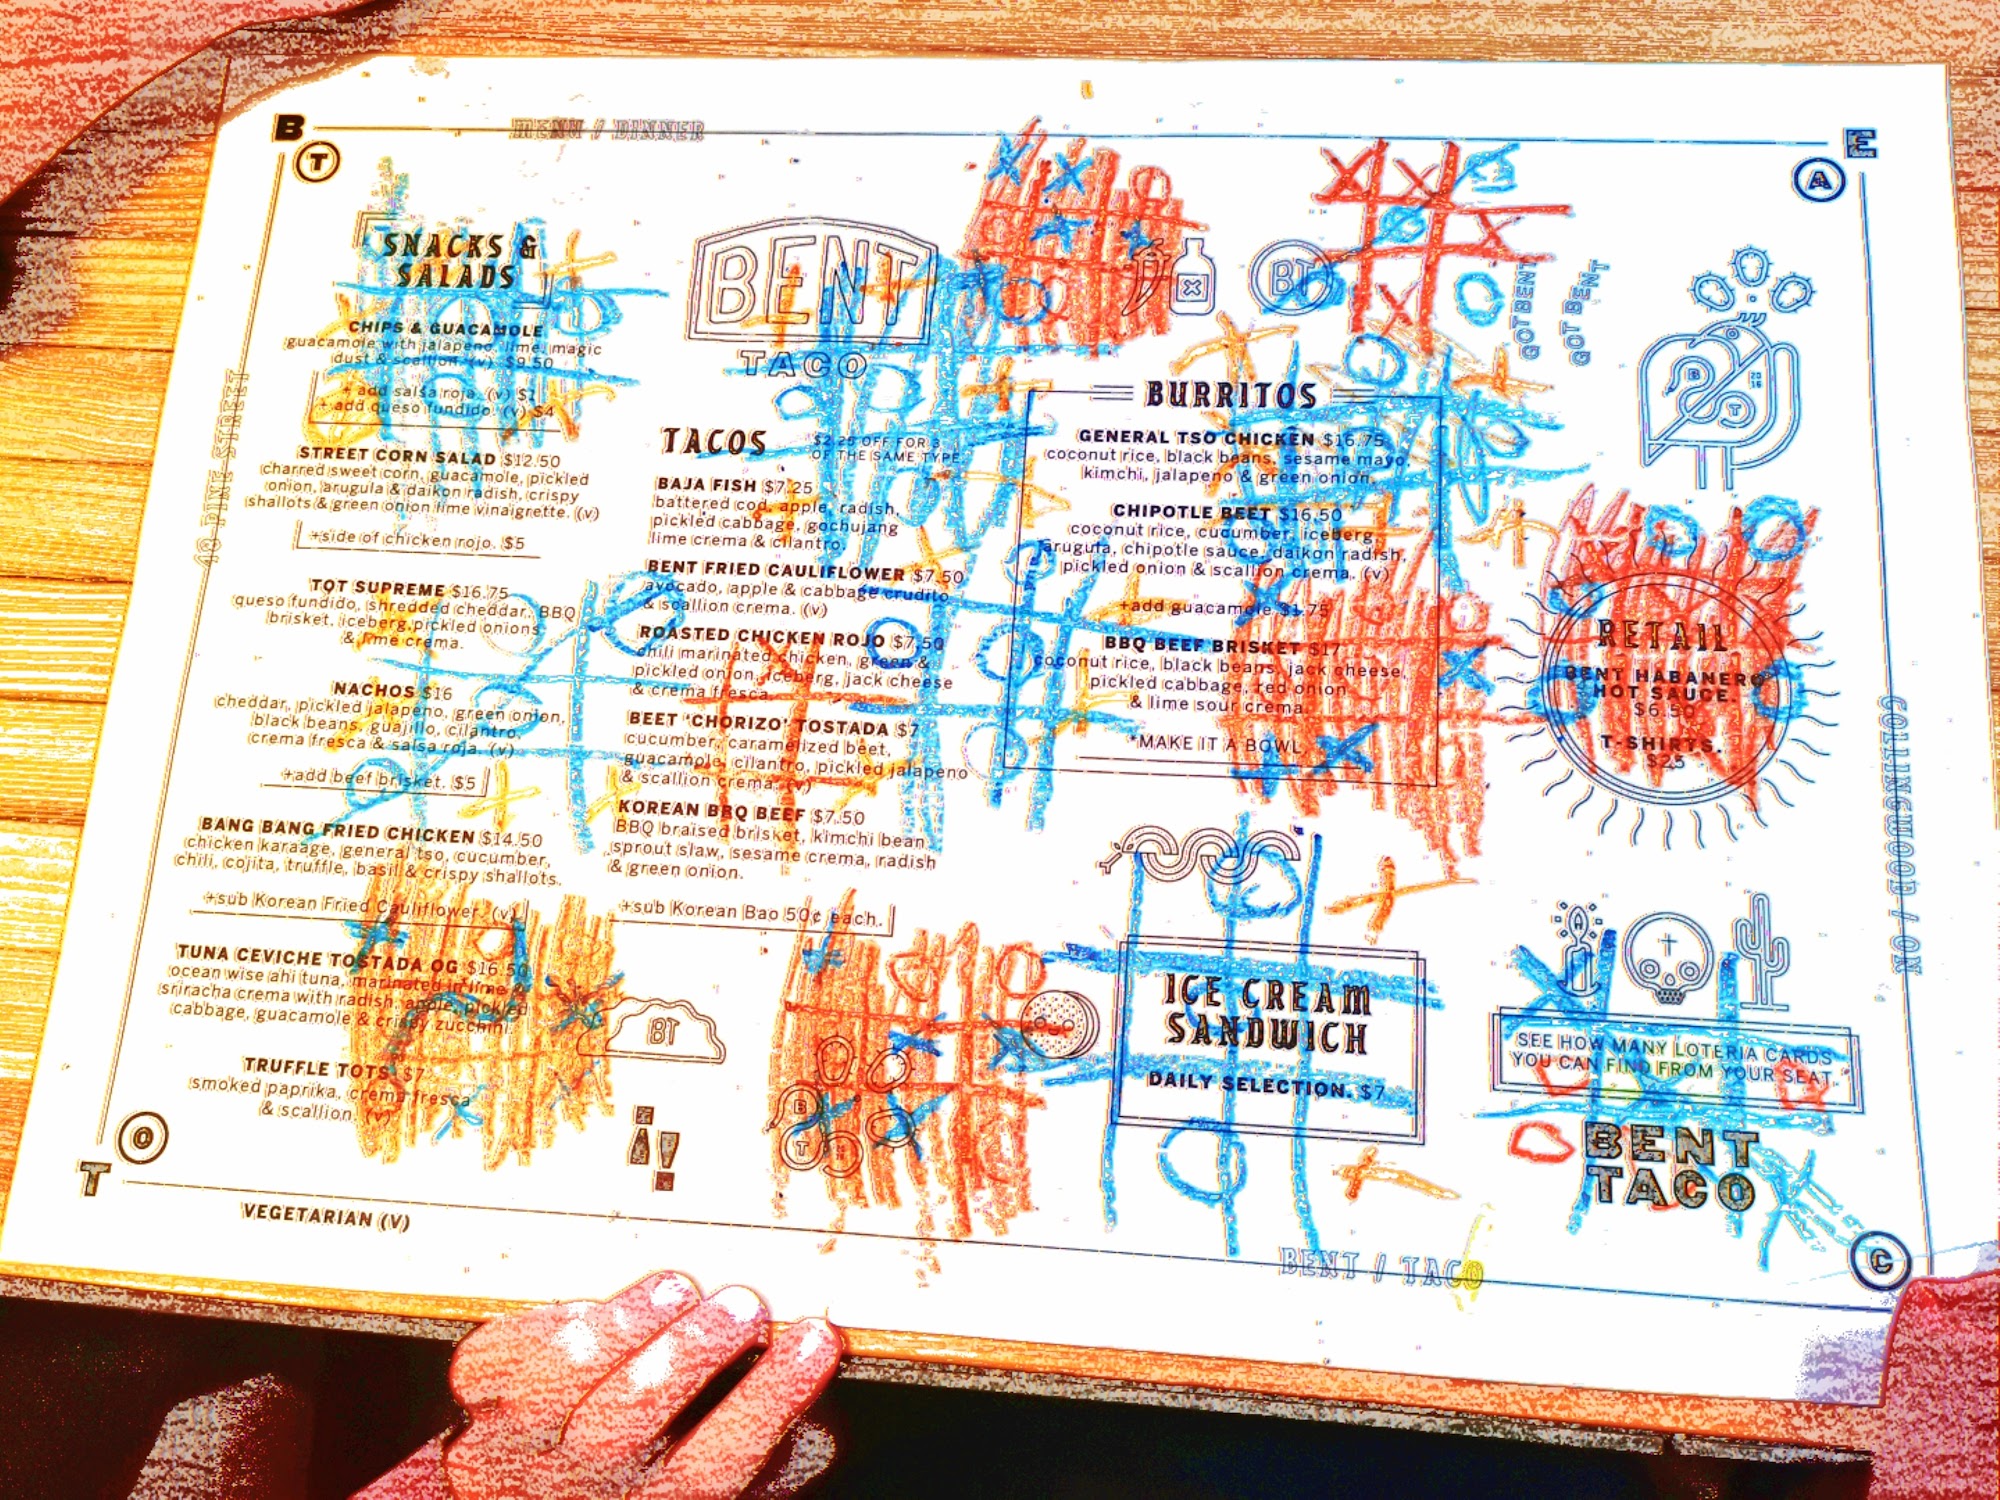 B
MENU / DINNER
E
T
A
SNACKS &
SALADS
CHIPS & GUACAMOLE
guacamole with jalapeno, lime, magic
dust & scallion. (v) $9.50
+ add salsa roja. (v) $2
+ add queso fundido. (v) $4
STREET CORN SALAD $12.50
charred sweet corn, guacamole, pickled
onion, arugula & daikon radish, crispy
shallots & green onion lime vinaigrette. (v)
+side of chicken rojo. $5
TOT SUPREME $16.75
queso fundido, shredded cheddar, BBQ
brisket, iceberg, pickled onions
& lime crema.
NACHOS $16
cheddar, pickled jalapeno, green onion,
black beans, guajillo, cilantro,
crema fresca & salsa roja. (v)
+add beef brisket. $5
BANG BANG FRIED CHICKEN $14.50
chicken karaage, general tso, cucumber,
chili, cojita, truffle, basil & crispy shallots.
+sub Korean Fried Cauliflower. (v)
TUNA CEVICHE TOSTADA OG $16.50
ocean wise ahi tuna, marinated in lime &
sriracha crema with radish, apple, pickled
cabbage, guacamole & crispy zucchini.
TRUFFLE TOTS $7
smoked paprika, crema fresca
& scallion. (v)
BENT
TACO
TACOS
$2.25 OFF FOR 3
OF THE SAME TYPE.
BAJA FISH $7.25
battered cod, apple, radish,
pickled cabbage, gochujang
lime crema & cilantro.
BENT FRIED CAULIFLOWER $7.50
avocado, apple & cabbage crudito
& scallion crema. (v)
ROASTED CHICKEN ROJO $7.50
chili marinated chicken, green &
pickled onion, iceberg, jack cheese
& crema fresca.
BEET 'CHORIZO' TOSTADA $7
cucumber, caramelized beet,
guacamole, cilantro, pickled jalapeno
& scallion crema. (v)
KOREAN BBQ BEEF $7.50
BBQ braised brisket, kimchi bean
sprout slaw, sesame crema, radish
& green onion.
+sub Korean Bao 50¢ each.
BT
BT
BURRITOS
GENERAL TSO CHICKEN $16.75
coconut rice, black beans, sesame mayo,
kimchi, jalapeno & green onion.
CHIPOTLE BEET $16.50
coconut rice, cucumber, iceberg,
arugula, chipotle sauce, daikon radish,
pickled onion & scallion crema. (v)
+add guacamole $1.75
BBQ BEEF BRISKET $17
coconut rice, black beans, jack cheese,
pickled cabbage, red onion
& lime sour crema.
*MAKE IT A BOWL
ICE CREAM
SANDWICH
DAILY SELECTION. $7
GOT BENT
GOT BENT
B
20
16
T
RETAIL
BENT HABANERO
HOT SAUCE.
$6.50
T-SHIRTS.
$25
SEE HOW MANY LOTERIA CARDS
YOU CAN FIND FROM YOUR SEAT.
BENT
TACO
B
T
48 PINE STREET
COLLINGWOOD / ON
O
T
VEGETARIAN (V)
BENT / TACO
C